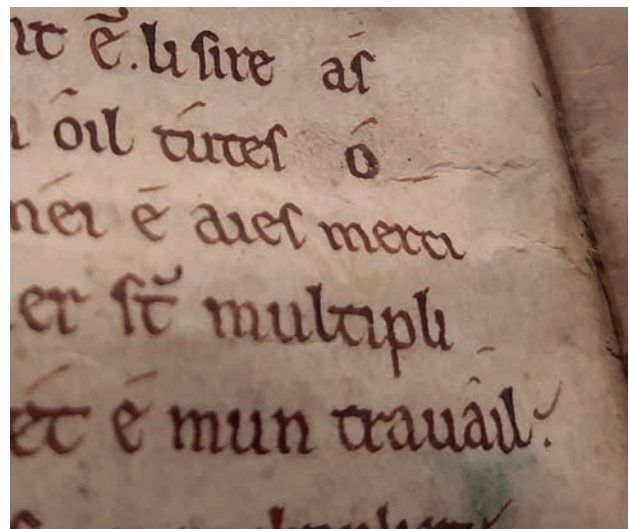 ē. li sire as
oil tutes o
mei ē aies merci
er st̄ multipli
et e mun trauail.